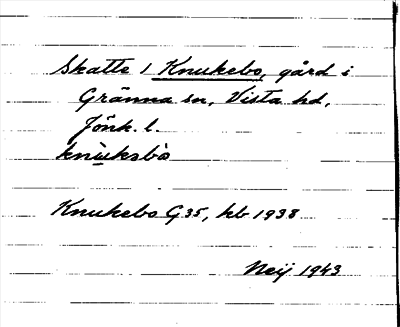 Skatte 1 Knukebo, gård i
Gränna sn, Vista hd,
Jönk. l.
knùksbò
Knukebo G35, kb 1938
Neij 1943